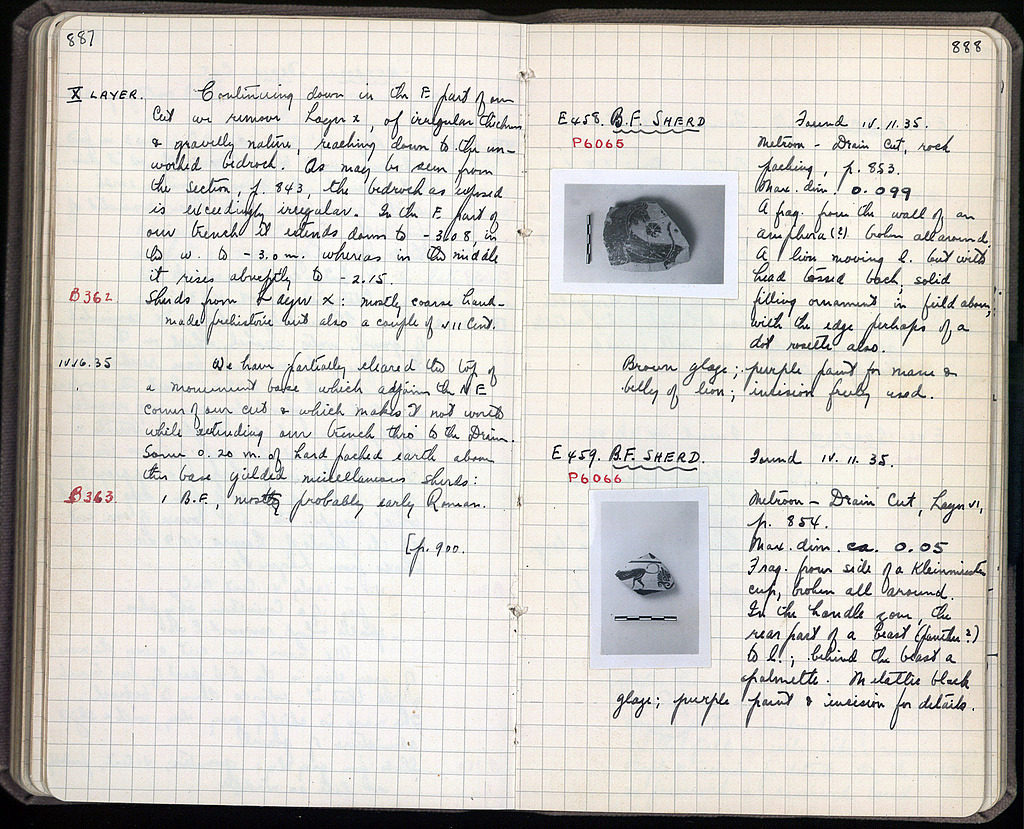 887
X LAYER. Continuing down in the E part of our
Cut we remove Layer X, of irregular thickness
& gravelly nature, reaching down to the un-
worked bedrock. As may be seen from
the section, p. 843, the bedrock as exposed
is exceedingly irregular. In the E part of
our trench it extends down to -3.08, in
the W. to -3.0 m. whereas in the middle
it rises abruptly to -2.15.
B362 Sherds from Layer X: mostly coarse hand-
made prehistoric but also a couple of VII cent.
IV.16.35 We have partially cleared the top of
a monument base which adjoins the NE
corner of our cut & which makes it not worth
while extending our trench thro' to the Drain.
Some 0.20 m. of hard packed earth above
this base yielded miscellaneous sherds:
B363 1 B.F., mostly probably early Roman.
[p. 900.
888
E458. B.F. SHERD Found IV.11.35.
P6065
Metroon - Drain Cut, rock
packing, p. 853.
Max. dim. 0.099
A frag. from the wall of an
amphora (?) broken all around.
A lion moving l. but with
head tossed back; solid
filling ornament in field above,
with the edge perhaps of a
dot rosette also.
Brown glaze; purple paint for mane &
belly of lion; incision freely used.
E459. B.F. SHERD. Found IV.11.35.
P6066
Metroon - Drain Cut, Layer VI,
p. 854.
Max. dim. ca. 0.05
Frag. from side of a Kleinmeister
cup, broken all around.
In the handle zone, the
rear part of a beast (panther?)
to l.; behind the beast a
palmette. Metallic black
glaze; purple paint & incision for details.